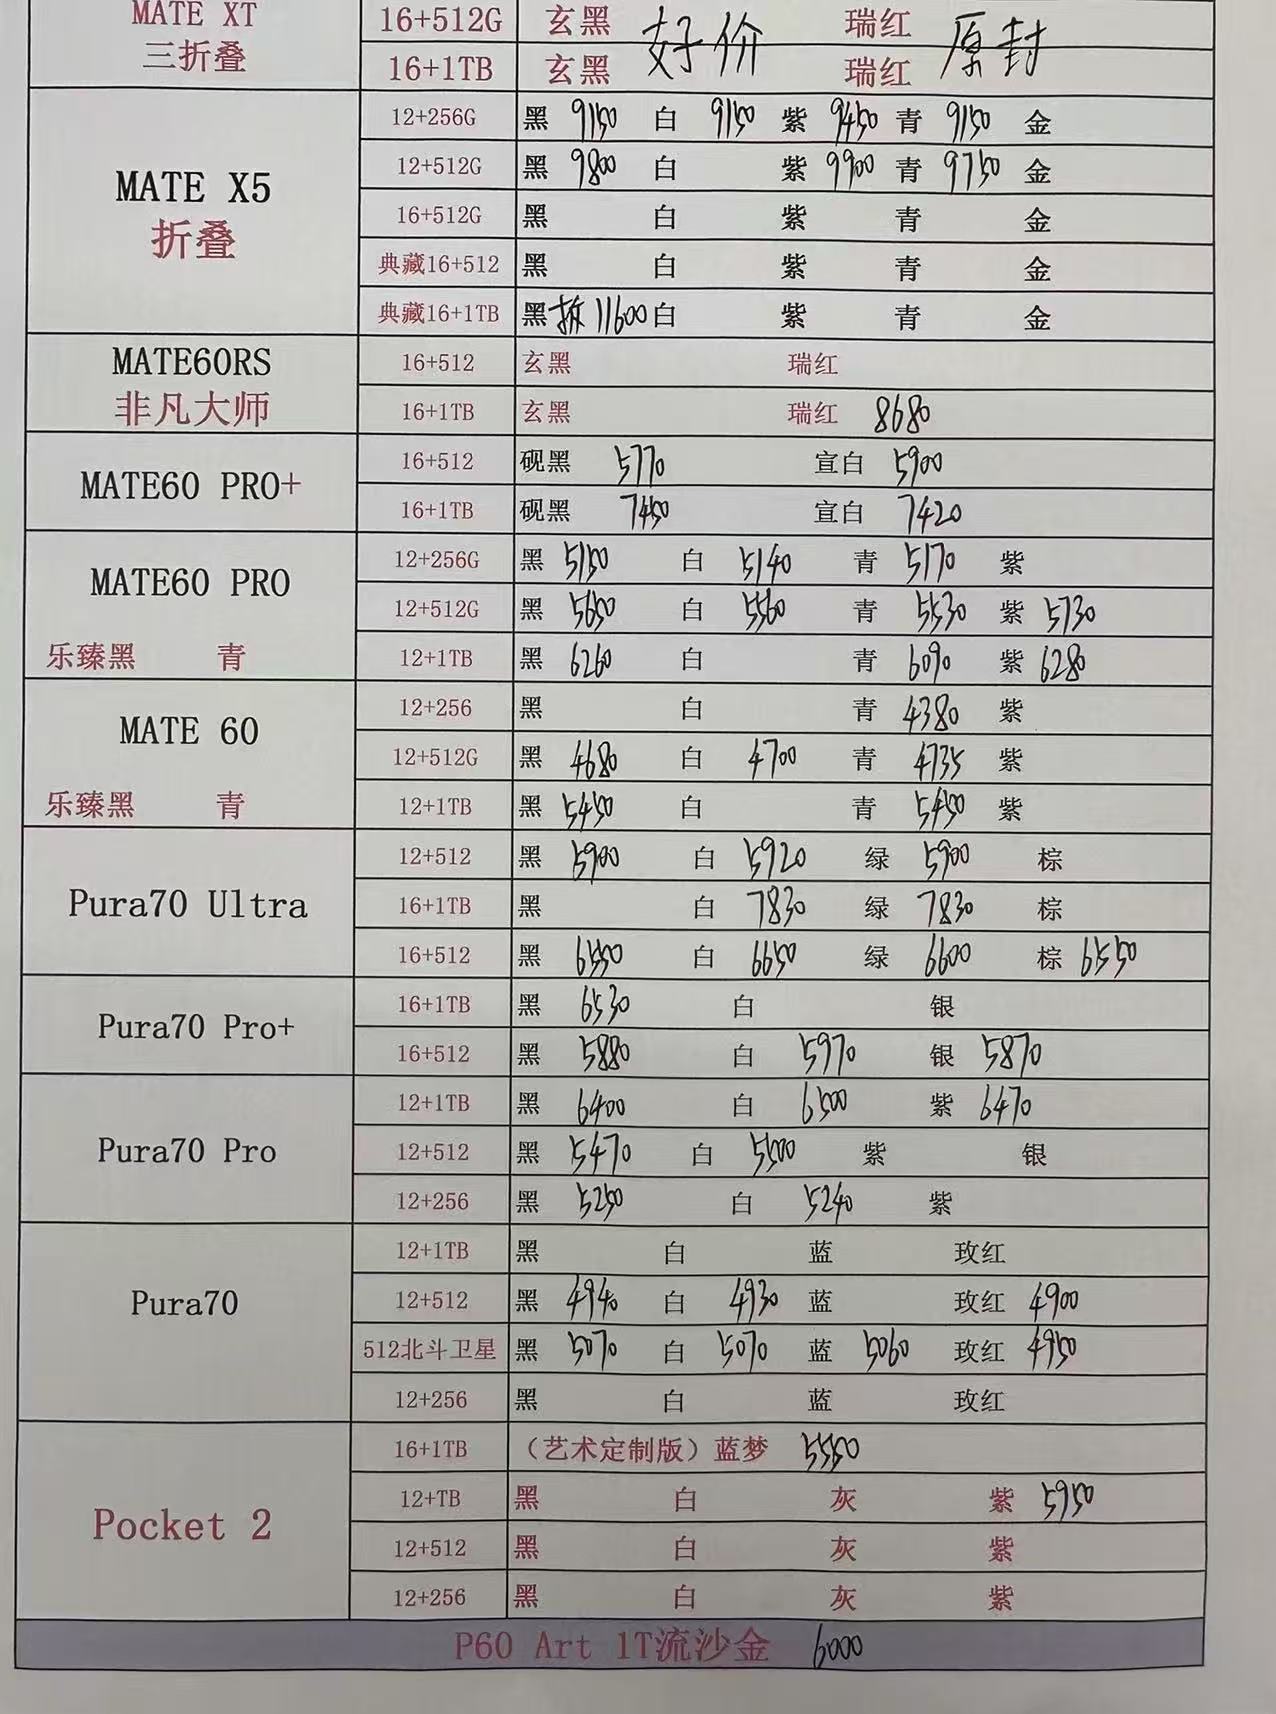 MATE XT 16+512G 玄黑 好价 瑞红 原封
三折叠 16+1TB 玄黑 瑞红
12+256G 黑 9150 白 9150 紫 9450 青 9150 金
MATE X5 12+512G 黑 9800 白 紫 9900 青 9750 金
折叠 16+512G 黑 白 紫 青 金
典藏16+512 黑 白 紫 青 金
典藏16+1TB 黑 拆 11600 白 紫 青 金
MATE60RS 16+512 玄黑 瑞红
非凡大师 16+1TB 玄黑 瑞红 8680
MATE60 PRO+ 16+512 砚黑 5770 宣白 5900
16+1TB 砚黑 7450 宣白 7420
MATE60 PRO 12+256G 黑 5150 白 5140 青 5170 紫
12+512G 黑 5650 白 5560 青 5530 紫 5730
乐臻黑 青 12+1TB 黑 6260 白 青 6090 紫 6280
MATE 60 12+256 黑 白 青 4380 紫
12+512G 黑 4680 白 4700 青 4735 紫
乐臻黑 青 12+1TB 黑 5450 白 青 5450 紫
12+512 黑 5900 白 5920 绿 5900 棕
Pura70 Ultra 16+1TB 黑 白 7830 绿 7830 棕
16+512 黑 6550 白 6650 绿 6600 棕 6550
Pura70 Pro+ 16+1TB 黑 6530 白 银
16+512 黑 5880 白 5970 银 5870
12+1TB 黑 6400 白 6500 紫 6470
Pura70 Pro 12+512 黑 5470 白 5500 紫 银
12+256 黑 5250 白 5240 紫
12+1TB 黑 白 蓝 玫红
Pura70 12+512 黑 4940 白 4930 蓝 玫红 4900
512北斗卫星 黑 5070 白 5070 蓝 5060 玫红 4950
12+256 黑 白 蓝 玫红
16+1TB （艺术定制版）蓝梦 5550
12+TB 黑 白 灰 紫 5950
Pocket 2 12+512 黑 白 灰 紫
12+256 黑 白 灰 紫
P60 Art 1T流沙金 6000